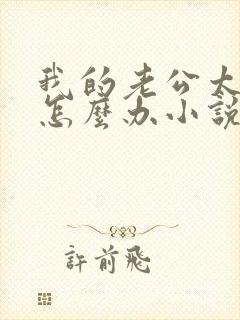 我的老公太
怎麼办小說
許前飛